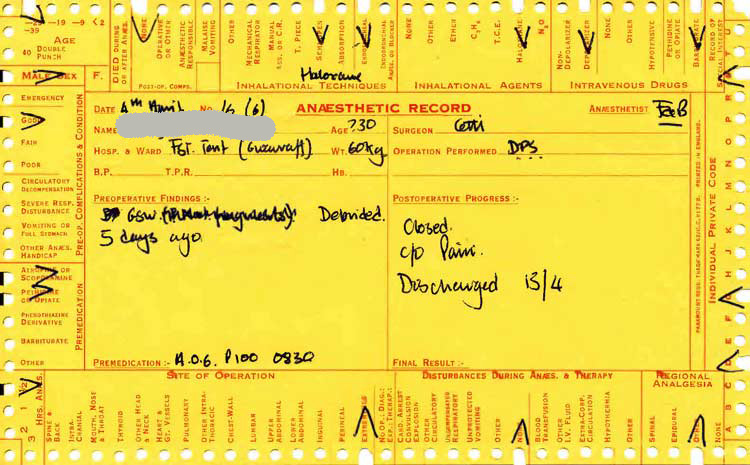 -29 -19 -9 <2
-39
AGE
40 DOUBLE PUNCH
DIED DURING OR AFTER ANÆS.
NONE
OPERATIVE OR OTHER
ANÆSTHETIC RESPONSIBLE
MALAISE VOMITING
OTHER
MECHANICAL RESPIRATOR
MANUAL ASS. OR C.R.
T. PIECE
ABSORPTION
ENDOTRACHEAL
ENDOBRONCHIAL ANÆS. OR BLOCKER
NONE
OTHER
ETHER
C₃H₆
T.C.E.
N₂O
NON-DEPOLARIZER
DEPOLARIZER
NONE
OTHER
HYPOTENSIVE
PETHIDINE OR OPIATE
BARBITURATE
RECORD OF SPECIAL INTEREST
MALE SEX F.
POST-OP. COMPS.
INHALATIONAL TECHNIQUES
INHALATIONAL AGENTS
INTRAVENOUS DRUGS
Halothane
EMERGENCY
GOOD
FAIR
POOR
CIRCULATORY DECOMPENSATION
SEVERE RESP. DISTURBANCE
VOMITING OR FULL STOMACH
OTHER ANÆS. HANDICAP
ATROPINE OR SCOPOLAMINE
PETHIDINE OR OPIATE
PHENOTHIAZINE DERIVATIVE
BARBITURATE
OTHER
PRE-OP. COMPLICATIONS & CONDITION
PREMEDICATION
DATE 4TH April No. 16 (6) ANÆSTHETIC RECORD ANÆSTHETIST
NAME AGE ?30 SURGEON
HOSP. & WARD Fst. Tent WT. 60kg OPERATION PERFORMED DPS
B.P. T.P.R. HB.
PREOPERATIVE FINDINGS :- POSTOPERATIVE PROGRESS :-
GSW Debrided.
5 days ago
Closed.
c/o Pain.
Discharged 13/4
PREMEDICATION :- P100 0830 FINAL RESULT :-
INDIVIDUAL PRIVATE CODE
PRINTED IN ENGLAND.
A B C D E F G H I J K L M N O P R
SITE OF OPERATION
DISTURBANCES DURING ANÆS. & THERAPY
REGIONAL ANALGESIA
3 2 1 ½
HRS. ANÆS.
SPINE & BACK
INTRA-CRANIAL
MOUTH, NOSE & THROAT
THYROID
OTHER HEAD & NECK
HEART & GT. VESSELS
PULMONARY
OTHER INTRA-THORACIC
CHEST-WALL
LUMBAR
UPPER ABDOMINAL
LOWER ABDOMINAL
INGUINAL
PERINEAL
EXTREMITIES
NO OP., DIAG.: EXP.: THERAP.:
CARD. ARREST CONVULSION EXPLOSION
OTHER CIRCULATORY
UNSUPPRESSED RESPIRATORY
UNPROTECTED VOMITING
OTHER
NONE
BLOOD TRANSFUSION
OTHER I.V. FLUID
EXTRA-CORP. CIRCULATION
HYPOTHERMIA
OTHER
SPINAL
EPIDURAL
OTHER